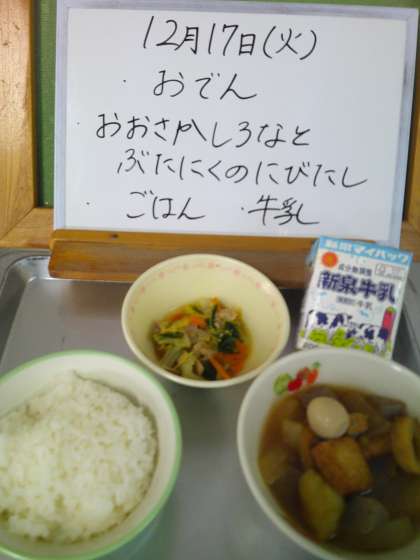 12月17日(火)
・おでん
・おおさかしろなと
ぶたにくのにびたし
・ごはん ・牛乳
新泉マイパック
成分無調整
新泉牛乳